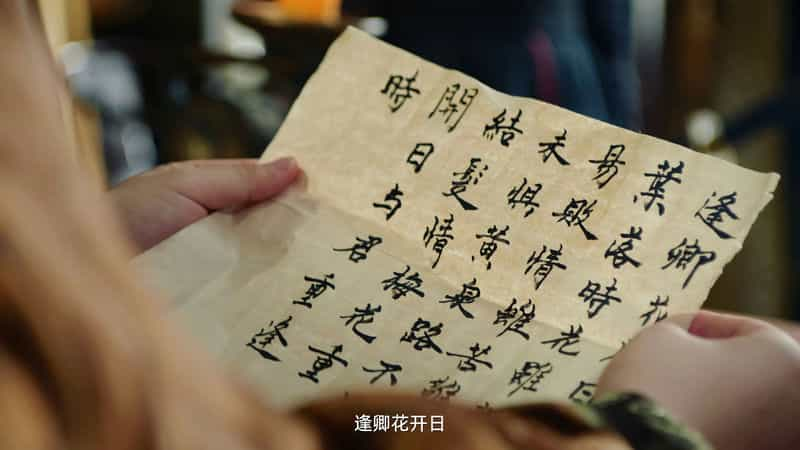 逢卿花日
葉落時花雖
易敗情雖苦
未惧黄泉路不
結髮情梅花重
開日与君重逢
時
逢卿花开日